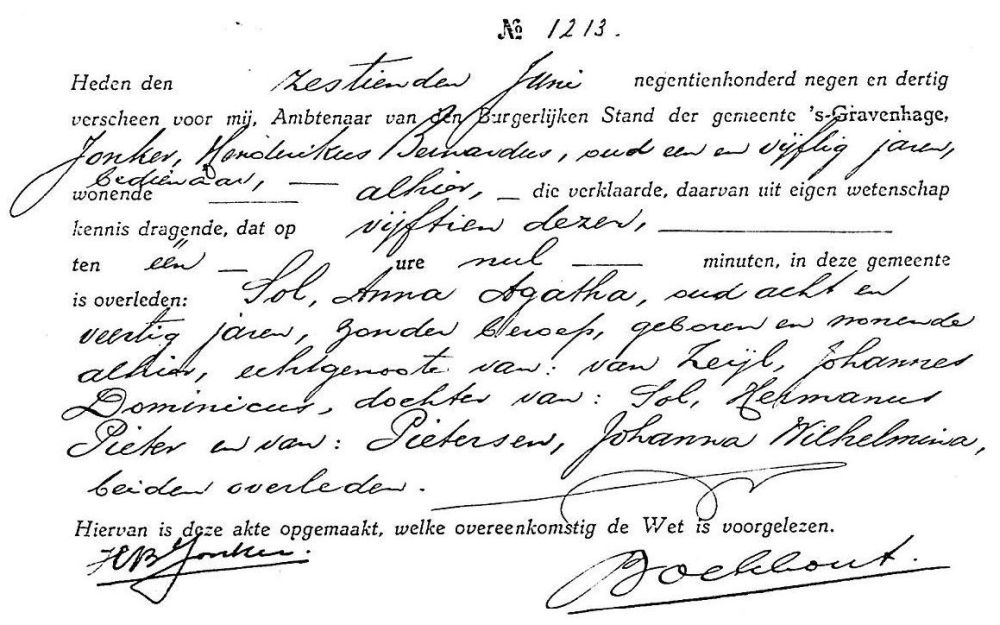 № 1213.
Heden den zestienden Juni negentienhonderd negen en dertig
verscheen voor mij, Ambtenaar van den Burgerlijken Stand der gemeente 's-Gravenhage,
Jonker, Henderikus Bernardus, oud een en vijftig jaren,
bedienaar,
wonende — alhier, — die verklaarde, daarvan uit eigen wetenschap
kennis dragende, dat op vijftien dezer, —
ten één — ure nul — minuten, in deze gemeente
is overleden: Sol, Anna Agatha, oud acht en
veertig jaren, zonder beroep, geboren en wonende
alhier, echtgenoote van: van Zeijl, Johannes
Dominicus, dochter van: Sol, Hermanus
Pieter en van: Pietersen, Johanna Wilhelmina,
beiden overleden.
Hiervan is deze akte opgemaakt, welke overeenkomstig de Wet is voorgelezen.
HB Jonker. Bockhout.